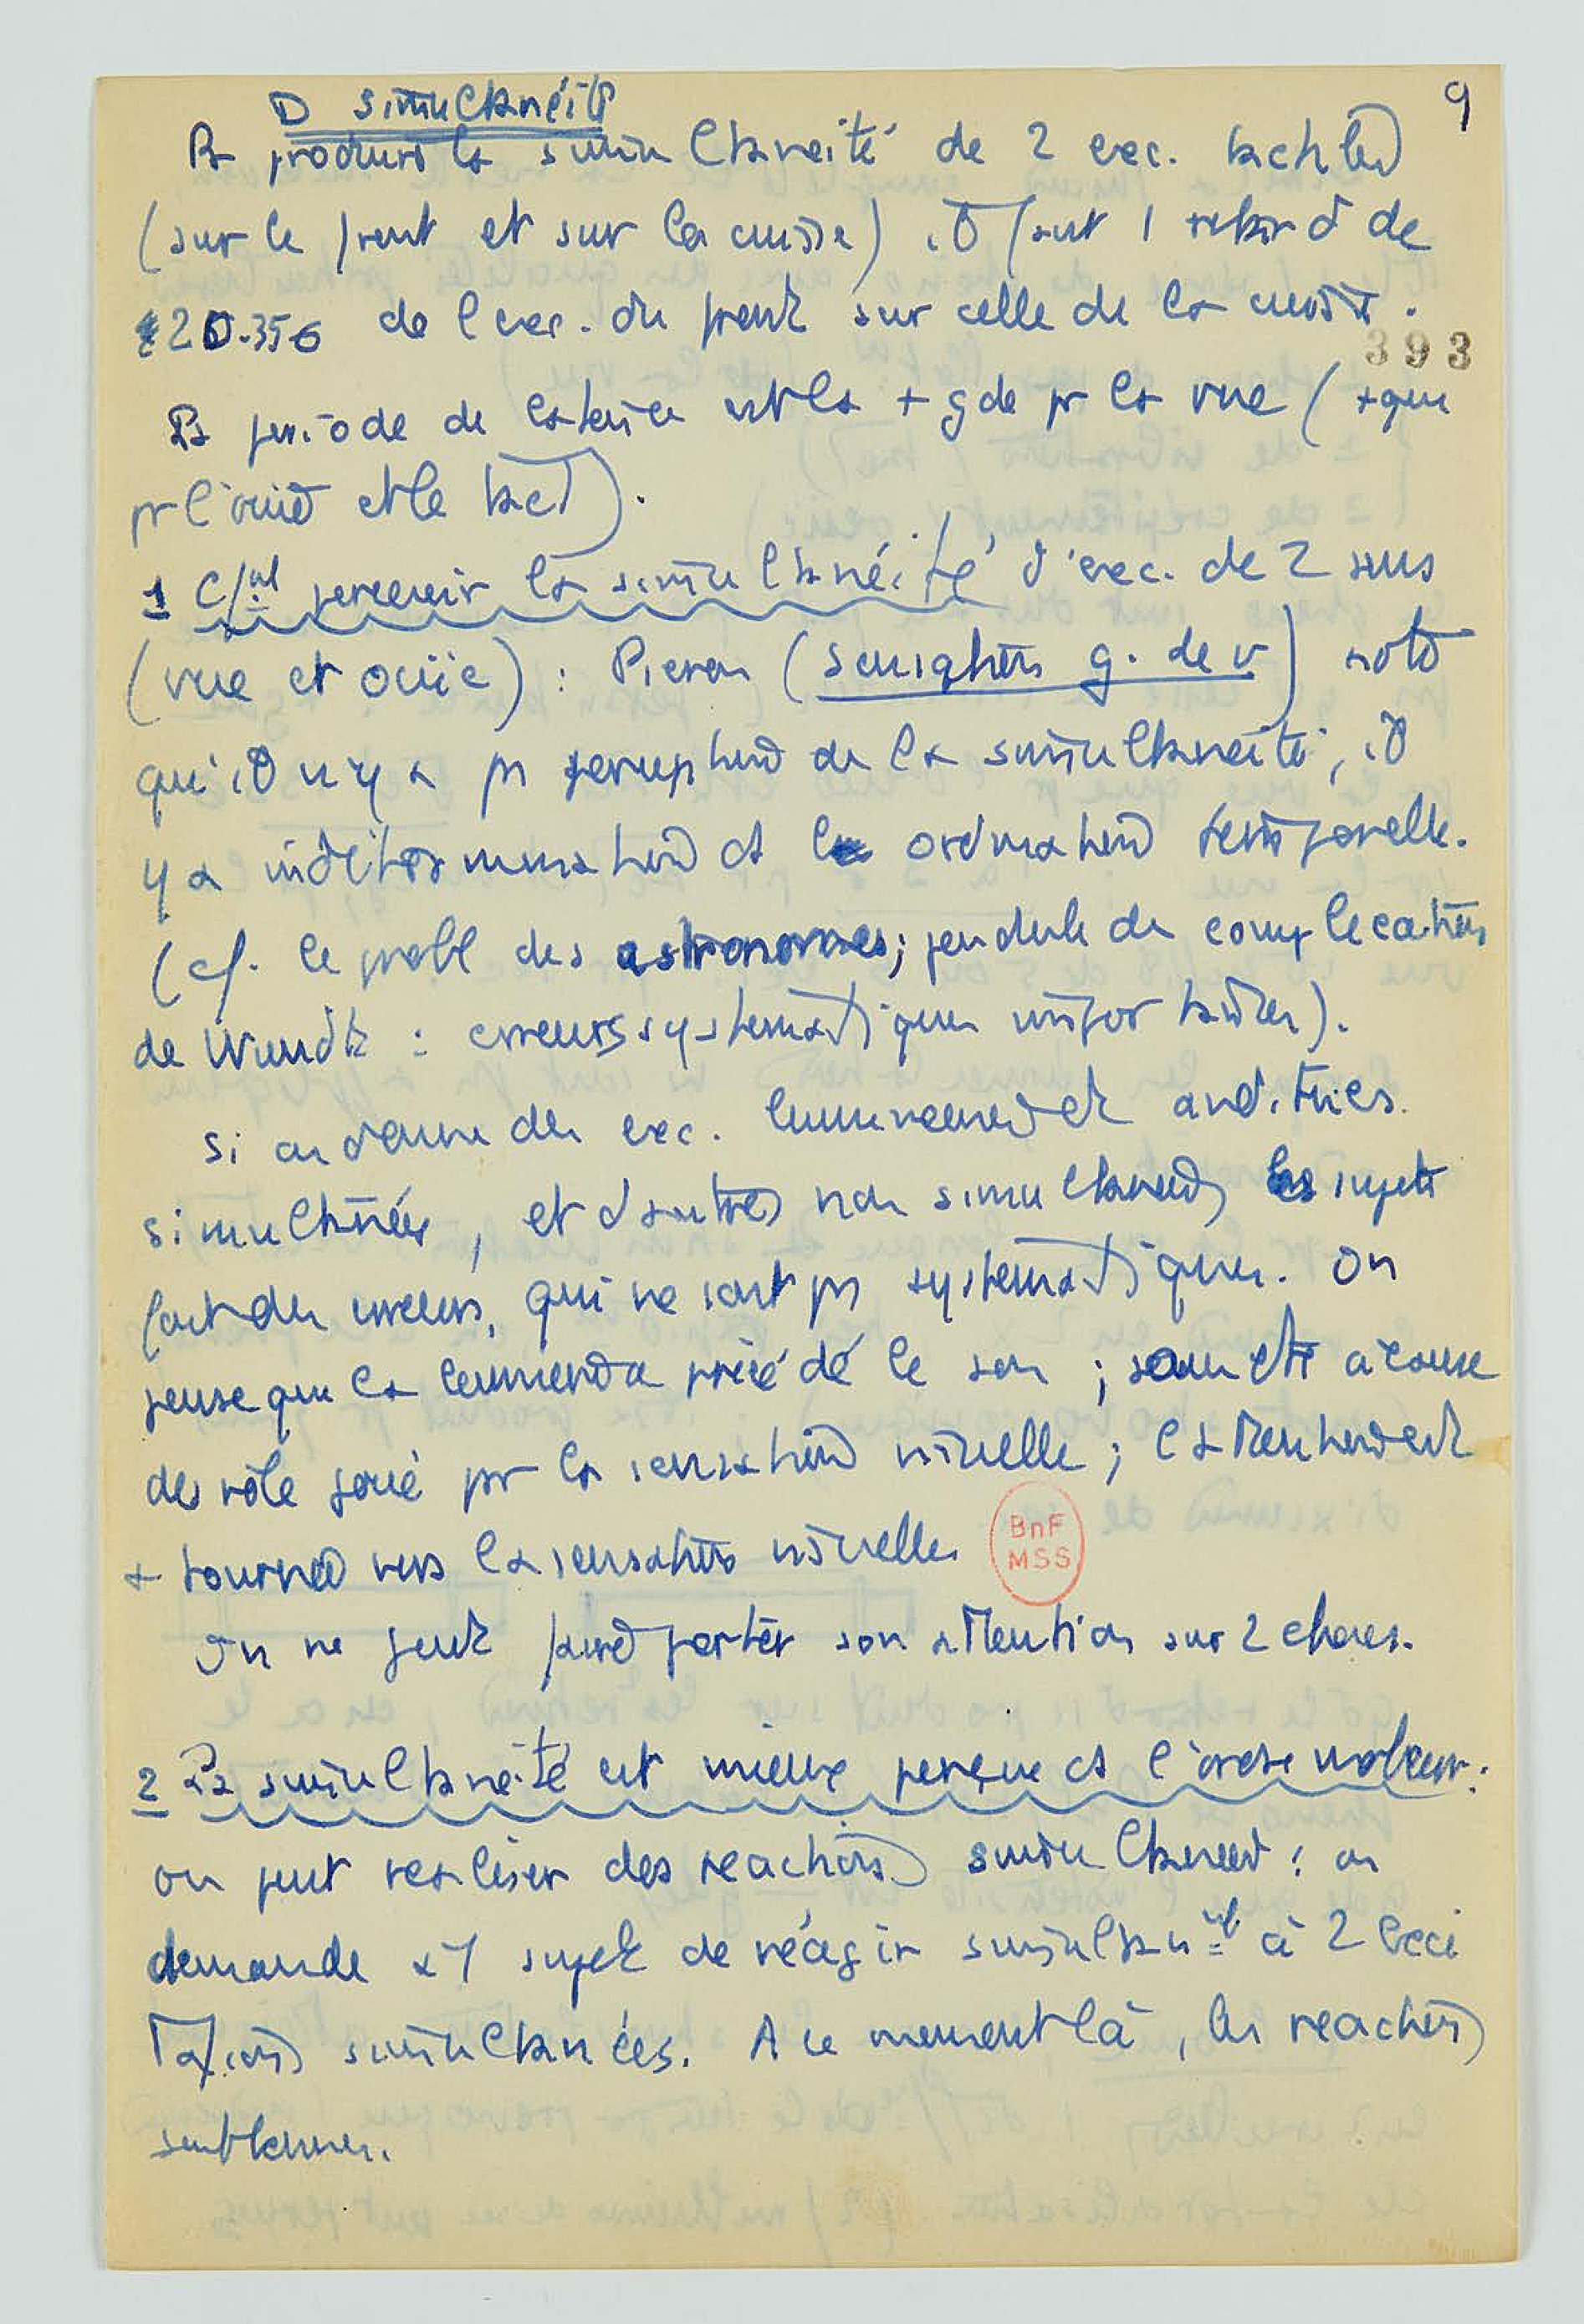 9
D simultanéité
Pr produire la simultaneité de 2 exc. tactiles
(sur le front et sur la cuisse) il faut 1 retard de
20.35 σ de l'exc. du front sur celle de la cuisse.
393
La periode de latence est la + gde pr la vue (+ que
pr l'ouie et le tact).
1 C/nt percevoir la simultanéité d'exc. de 2 sens
(vue et ouïe) : Pieron (sensation g. de v) note
qu'il n'y a pas perception de la simultaneité, il
y a indétermination ds l' ordination temporelle.
(cf. le probl des astronomes; pendule de complications
de Wundt : erreurs systematiques importantes).
Si on donne des exc. lumineuses et auditives
simultanées, et d'autres non simultanées les sujets
font des erreurs, qui ne sont pas systematiques. On
pense que la lumiere a précédé le son ; sans dte à cause
du rôle joué par la sensation visuelle ; l'attention est
+ tournée vers la sensation visuelle.
BnF
MSS
On ne peut pas porter son attention sur 2 choses.
2 La simultaneité est mieux perçue ds l'ordre moteur :
on peut realiser des reactions simultanées : on
demande a 1 sujet de réagir simultannt à 2 exci
tations simultanées. A ce moment là, les reactions